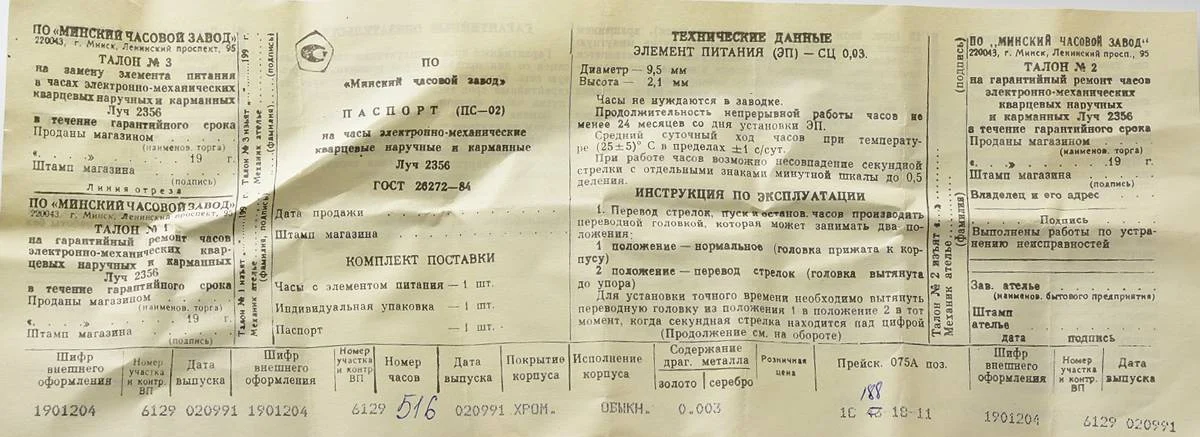 ПО «МИНСКИЙ ЧАСОВОЙ ЗАВОД»
220043, г. Минск, Ленинский проспект, 95
ТАЛОН № 3
на замену элемента питания
в часах электронно-механических
кварцевых наручных и карманных
Луч 2356
в течение гарантийного срока
Проданы магазином
(наименов. торга)
«. . .» 19 г.
Штамп магазина
(подпись)
Линия отреза
ПО «МИНСКИЙ ЧАСОВОЙ ЗАВОД»
220043, г. Минск, Ленинский проспект, 95
ТАЛОН № 1
на гарантийный ремонт часов
электронно-механических квар-
цевых наручных и карманных
Луч 2356
в течение гарантийного срока
Проданы магазином
(наименов. торга)
«. . .» 19 г.
Штамп магазина
(подпись)
Талон № 3 изъят «. .» 199 г.
Механик ателье
(фамилия) (подпись)
Талон № 1 изъят «. .» 199 г.
Механик ателье
(фамилия, подпись)
ПО
«Минский часовой завод»
ПАСПОРТ (ПС—02)
на часы электронно-механические
кварцевые наручные и карманные
Луч 2356
ГОСТ 26272—84
Дата продажи
Штамп магазина
КОМПЛЕКТ ПОСТАВКИ
Часы с элементом питания — 1 шт.
Индивидуальная упаковка — 1 шт.
Паспорт — 1 шт.
ТЕХНИЧЕСКИЕ ДАННЫЕ
ЭЛЕМЕНТ ПИТАНИЯ (ЭП) — СЦ 0,03.
Диаметр — 9,5 мм
Высота — 2,1 мм
Часы не нуждаются в заводке.
Продолжительность непрерывной работы часов не
менее 24 месяцев со дня установки ЭП.
Средний суточный ход часов при температу-
ре (25±5)° С в пределах ±1 с/сут.
При работе часов возможно несовпадение секундной
стрелки с отдельными знаками минутной шкалы до 0,5
деления.
ИНСТРУКЦИЯ ПО ЭКСПЛУАТАЦИИ
1. Перевод стрелок, пуск и останов. часов производить
переводной головкой, которая может занимать два по-
ложения:
1 положение — нормальное (головка прижата к кор-
пусу)
2 положение — перевод стрелок (головка вытянута
до упора)
Для установки точного времени необходимо вытянуть
переводную головку из положения 1 в положение 2 в тот
момент, когда секундная стрелка находится над цифрой
(Продолжение см. на обороте)
Талон № 2 изъят «. .»
Механик ателье
(фамилия) (подпись)
ПО „МИНСКИЙ ЧАСОВОЙ ЗАВОД"
220043, г. Минск, Ленинский просп., 95
ТАЛОН № 2
на гарантийный ремонт часов
электронно-механических
кварцевых наручных
и карманных Луч 2356
в течение гарантийного срока
Проданы магазином
(наименов. торга)
«. . .» 19 г.
Штамп магазина
(подпись)
Владелец и его адрес
Подпись
Выполнены работы по устра-
нению неисправностей
Зав. ателье
(наименов. бытового предприятия)
Штамп
ателье
дата подпись
Шифр внешнего оформления Номер участка и контр. ВП Дата выпуска Шифр внешнего оформления Номер участка и контр. ВП Номер часов Дата выпуска Покрытие корпуса Исполнение корпуса Содержание драг. металла золото серебро Розничная цена Прейск. 075А поз. Шифр внешнего оформления Номер участка и контр. ВП Дата выпуска
188
1901204 6129 020991 1901204 6129 516 020991 ХРОМ. ОБЫКН. 0.003 18-11 1901204 6129 020991